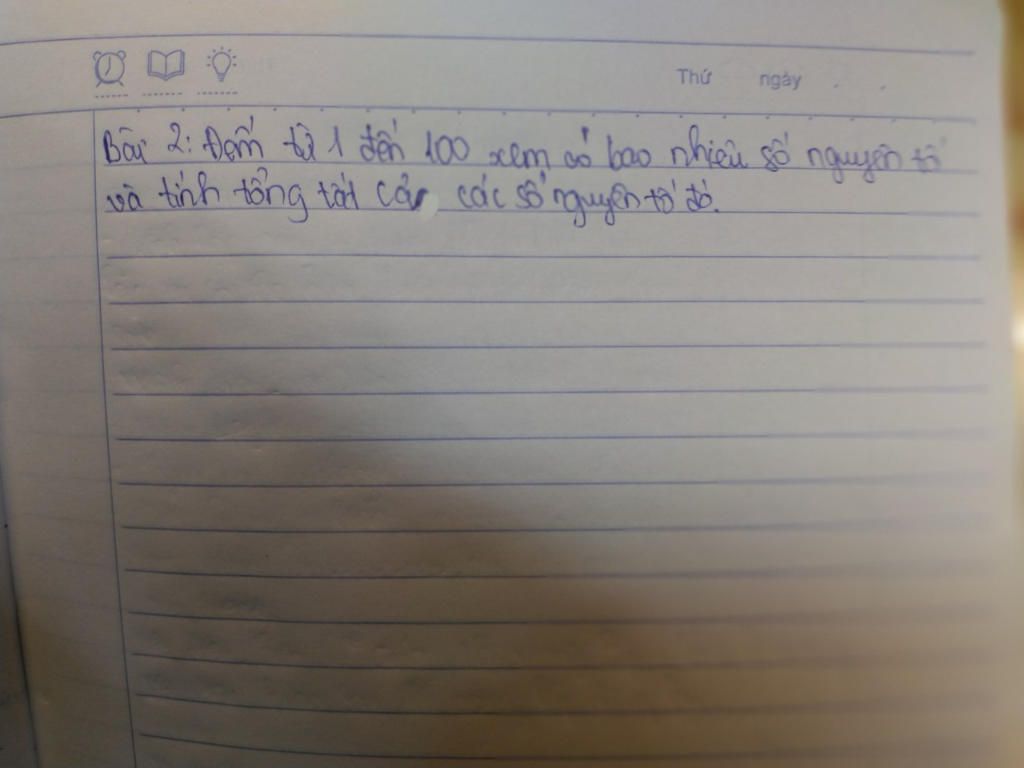 Thứ ngày
Bài 2: Đếm từ 1 đến 100 xem có bao nhiêu số nguyên tố
và tính tổng tất cả các số nguyên tố đó.